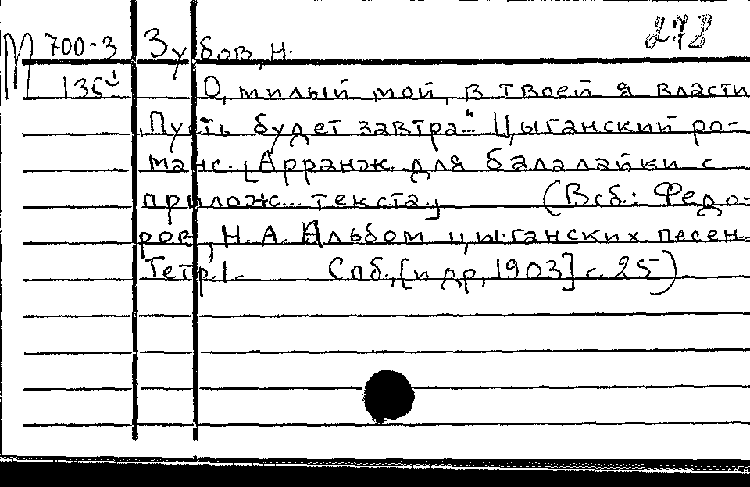 273
М 700-3 Зубов, Н.
135
О, милый мой, в твоей я власти
„Пусть будет завтра“. Цыганский ро-
манс. [Арранж. для балалайки с
прилож. текста] (В сб.: Федо-
ров, Н. А. Альбом цыганских песен.
Тетр. 1. Спб., [и др., 1903] с. 25)